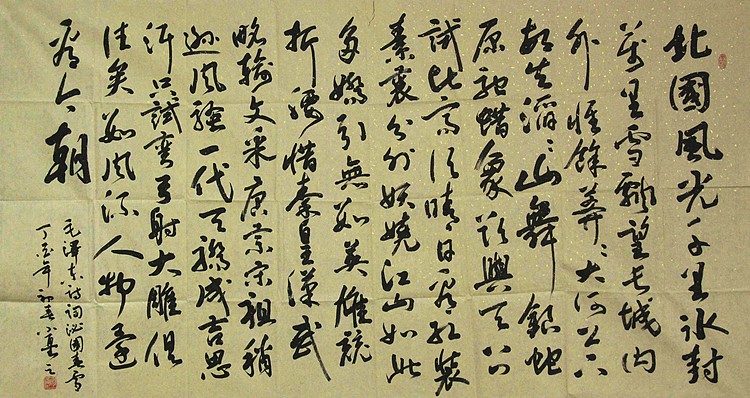 北國風光千里冰封
萬里雪飄望長城内
外惟餘莽々大河上下
頓失滔々山舞銀蛇
原馳蜡象欲與天公
試比高須晴日看紅裝
素裹分外妖嬈江山如此
多嬌引無數英雄競
折腰惜秦皇漢武
略輸文采唐宗宋祖稍
遜風騷一代天驕成吉思
汗只識彎弓射大雕俱
往矣數風流人物還
看今朝
毛澤東詩詞沁園春雪
丁亥年初春